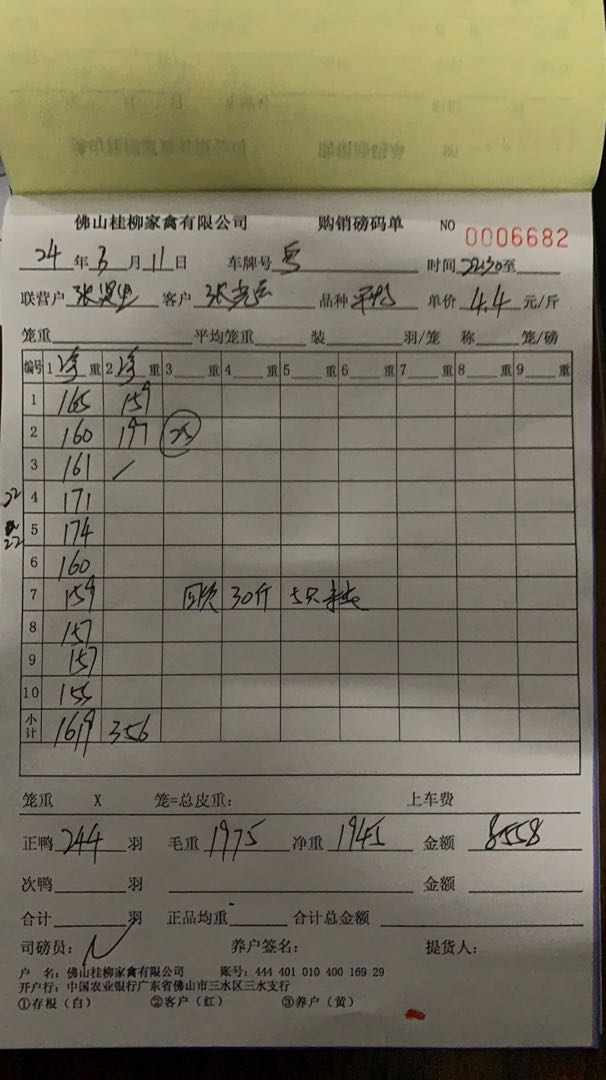 佛山桂柳家禽有限公司 购销磅码单 NO 0006682
24年3月11日 车牌号 时间22:30至
联营户 张 客户 张 品种 单价4.4元/斤
笼重 平均笼重 装 羽/笼 称 笼/磅
编号 1净重 2净重 3 重 4 重 5 重 6 重 7 重 8 重 9 重
1 165 159
2 160 197 25
3 161
22 4 171
22 5 174
6 160
7 159 30斤 5只
8 157
9 157
10 155
小计 1619 356
笼重 X 笼=总皮重: 上车费
正鸭244羽 毛重1975 净重1945 金额8558
次鸭 羽 金额
合计 羽 正品均重 合计总金额
司磅员: 养户签名: 提货人:
户 名:佛山桂柳家禽有限公司 账号:444 401 010 400 169 29
开户行:中国农业银行广东省佛山市三水区三水支行
①存根(白) ②客户(红) ③养户(黄)